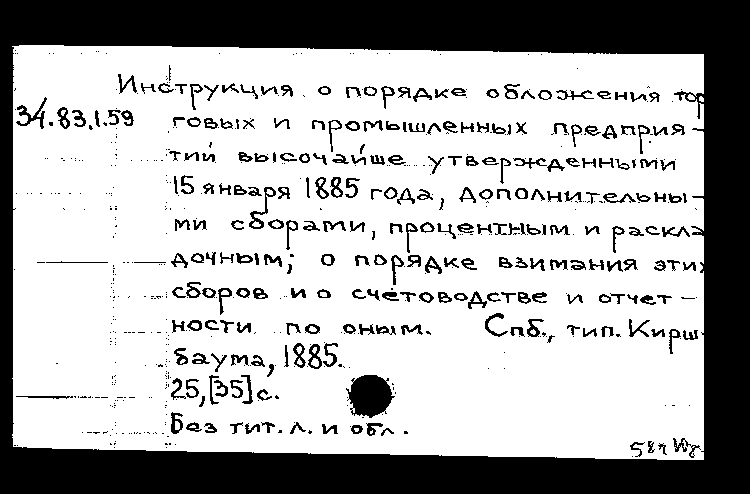 Инструкция о порядке обложения тор
34.83.1.59 говых и промышленных предприя-
тий высочайше утвержденными
15 января 1885 года, дополнительны-
ми сборами, процентным и раскла
дочным; о порядке взимания этих
сборов и о счетоводстве и отчет-
ности по оным. Спб., тип. Кирш-
баума, 1885.
25,[35]с.
Без тит. л. и обл.